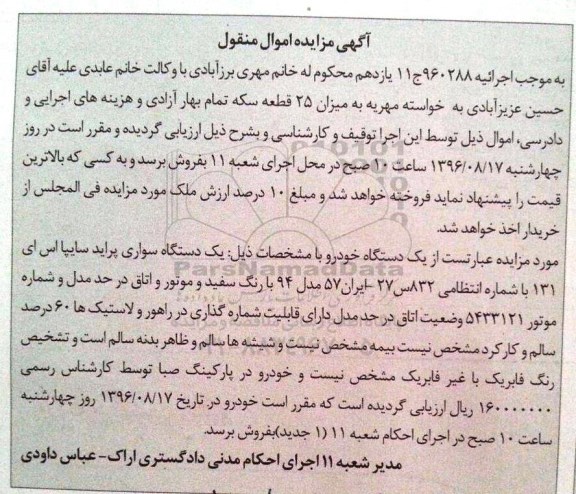 آگهی مزایده اموال منقول
به موجب اجرائیه ۹۶۰۲۸۸ج۱۱ یازدهم محکوم له خانم مهری برزآبادی با وکالت خانم عابدی علیه آقای
حسین عزیزآبادی به خواسته مهریه به میزان ۲۵ قطعه سکه تمام بهار آزادی و هزینه های اجرایی و
دادرسی، اموال ذیل توسط این اجرا توقیف و کارشناسی و بشرح ذیل ارزیابی گردیده و مقرر است در روز
چهارشنبه ۱۳۹۶/۰۸/۱۷ ساعت ۱۰ صبح در محل اجرای شعبه ۱۱ بفروش برسد و به کسی که بالاترین
قیمت را پیشنهاد نماید فروخته خواهد شد و مبلغ ۱۰ درصد ارزش ملک مورد مزایده فی المجلس از
خریدار اخذ خواهد شد.
مورد مزایده عبارتست از یک دستگاه خودرو با مشخصات ذیل: یک دستگاه سواری پراید سایپا اس ای
۱۳۱ با شماره انتظامی ۸۳۲س۲۷-ایران۵۷ مدل ۹۴ با رنگ سفید و موتور و اتاق در حد مدل و شماره
موتور ۵۴۳۳۱۲۱ وضعیت اتاق در حد مدل دارای قابلیت شماره گذاری در راهور و لاستیک ها ۶۰ درصد
سالم و کارکرد مشخص نیست بیمه مشخص نیست و شیشه ها سالم و ظاهر بدنه سالم است و تشخیص
رنگ فابریک با غیر فابریک مشخص نیست و خودرو در پارکینگ صبا توسط کارشناس رسمی
۱۶۰۰۰۰۰۰۰ ریال ارزیابی گردیده است که مقرر است خودرو در تاریخ ۱۳۹۶/۰۸/۱۷ روز چهارشنبه
ساعت ۱۰ صبح در اجرای احکام شعبه ۱۱ (۱ جدید)بفروش برسد.
مدیر شعبه ۱۱ اجرای احکام مدنی دادگستری اراک- عباس داودی
ParsNamadData